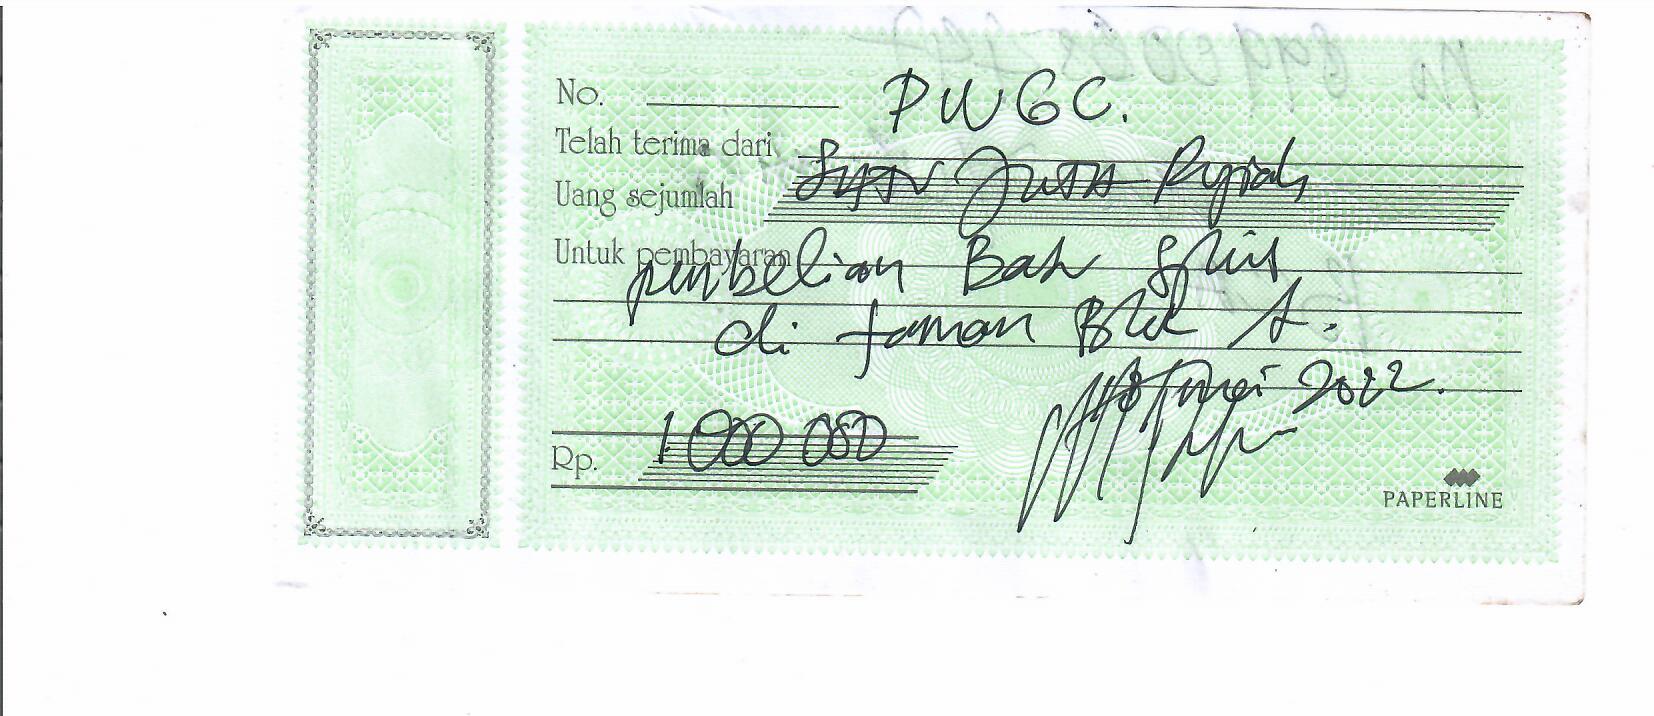 No. PWGC.
Telah terima dari
Uang sejumlah Satu Juta Rupiah
Untuk pembayaran pembelian Batu
di taman Blok A.
Mei 2022.
Rp. 1.000 000
PAPERLINE